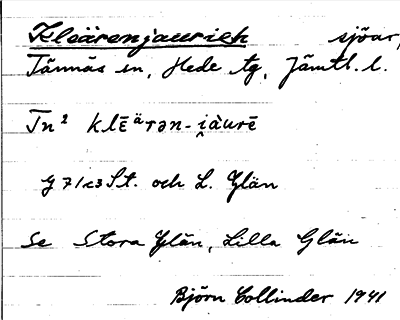 Kleärenjaurieh sjöar,
Tännäs sn, Hede tg, Jämtl. l.
Tn² klēᵃ̈rən-i̯àurē
St. och L. Glän
Se Stora Glän, Lilla Glän
Björn Collinder 1941